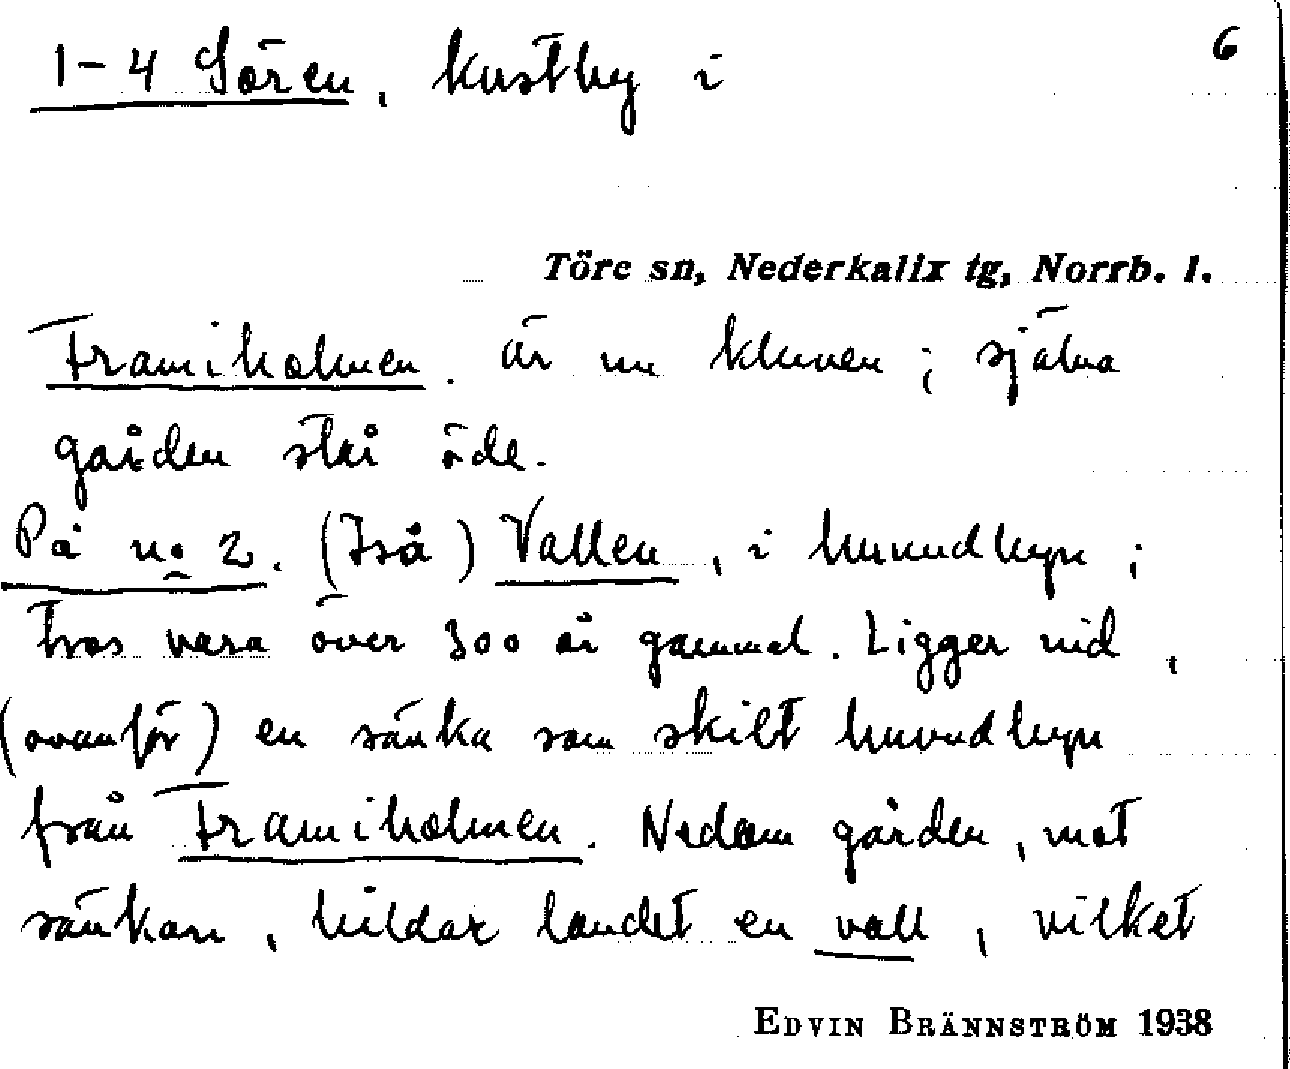 1-4 Sören, kustby i 6
Töre sn, Nederkalix tg, Norrb. l.
Framiholmen. är nu kluven; själva
gården står öde.
På no 2. (Två) Vallen, i huvudbyn;
tros vara över 300 år gammal. Ligger vid,
(ovanför) en sänka som skilt huvudbyn
från Framiholmen. Nedom gården, mot
sänkan, bildar landet en vall, vilket
EDVIN BRÄNNSTRÖM 1938